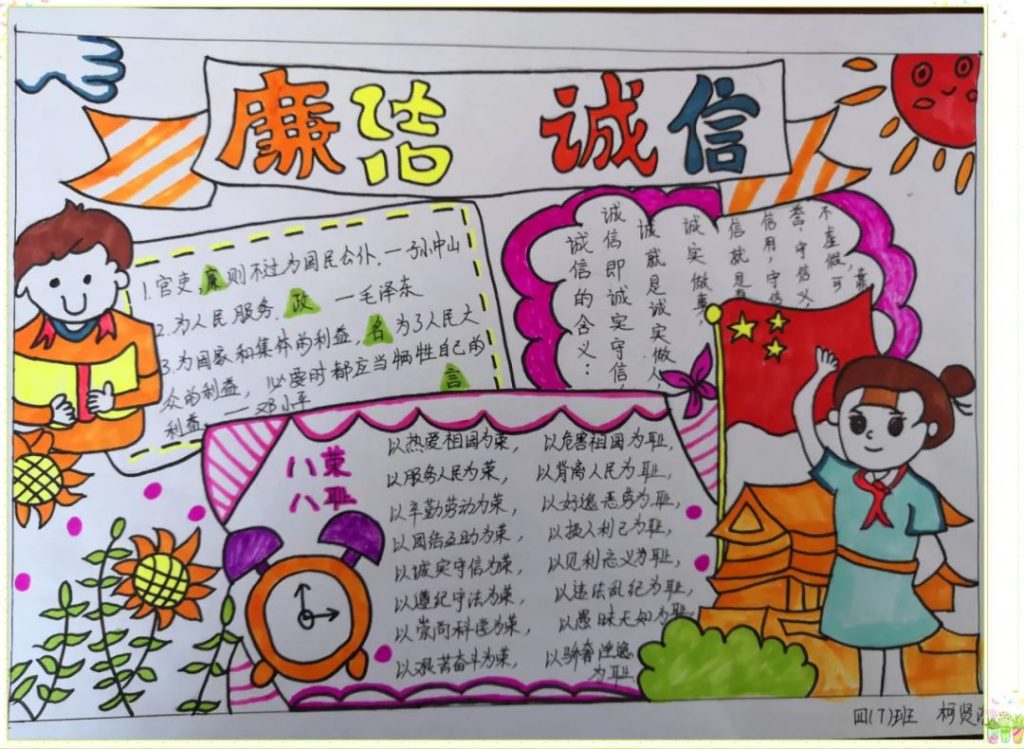 廉洁 诚信
1.官吏,廉则不过为国民公仆.一孙中山
2.为人民服务.政 一毛泽东
3.为国家和集体的利益,名为了人民大
众的利益,必要时都应当牺牲自己的
言
利益.一邓小平
诚信的含义:
诚信即诚实守信,
诚就是诚实做人,
诚实做事,
信就是
信用,守信
守信义
不虚假,可
靠
八荣
八耻
以热爱祖国为荣, 以危害祖国为耻,
以服务人民为荣, 以背离人民为耻,
以辛勤劳动为荣, 以好逸恶劳为耻,
以团结互助为荣, 以损人利己为耻,
以诚实守信为荣, 以见利忘义为耻,
以遵纪守法为荣, 以违法乱纪为耻,
以崇尚科学为荣, 以愚昧无知为耻,
以艰苦奋斗为荣, 以骄奢淫逸
为耻
四(7)班 柯贤